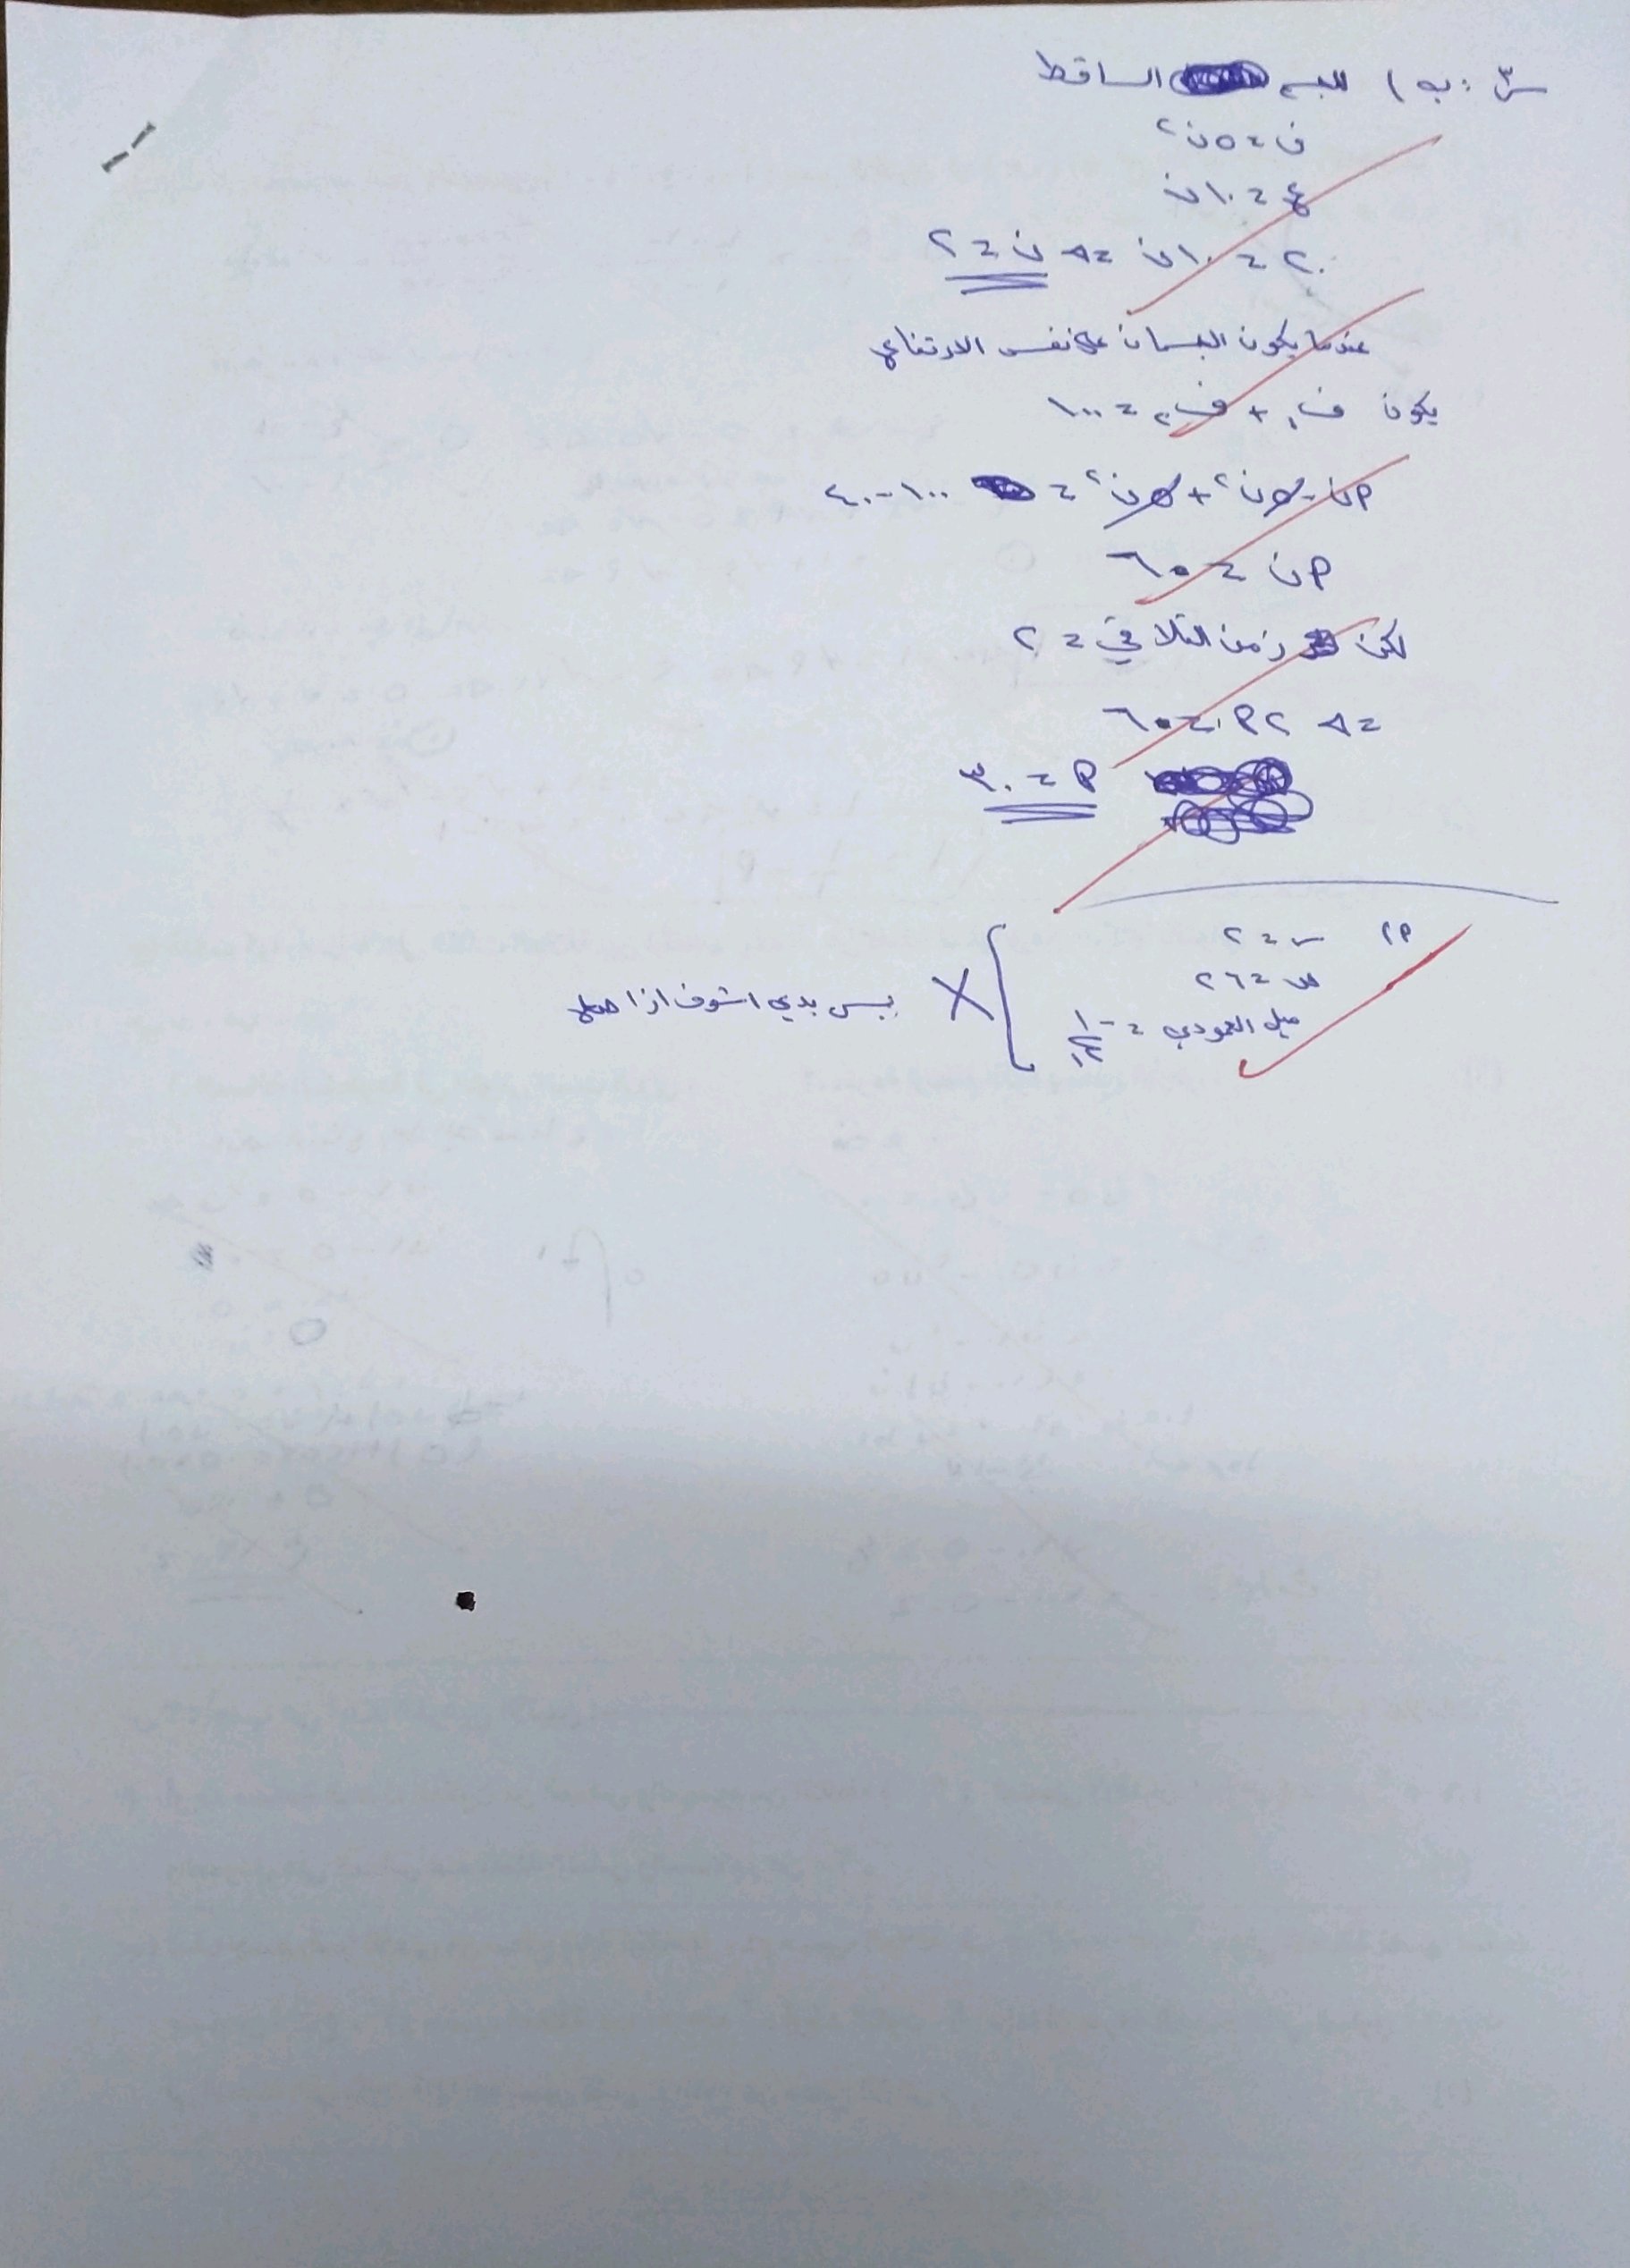 س٣: ب) للجسم الساقط
ف = ٥ن٢
ع = ١٠ن
٢٠ = ١٠ن => ن = ٢
عندما يكون الجسمان على نفس الارتفاع
يكون ف١ + ف٢ = ١٠٠
أن - ٥ن٢ + ٥ن٢ = ١٠٠-٤٠
أن = ٦٠
لكن زمن التلاقي = ٢
=> ٢أ = ٦٠
أ = ٣٠
س = ٢
ص = ٢٦
ميل العمودي =
بس بدي اشوف اذا صح